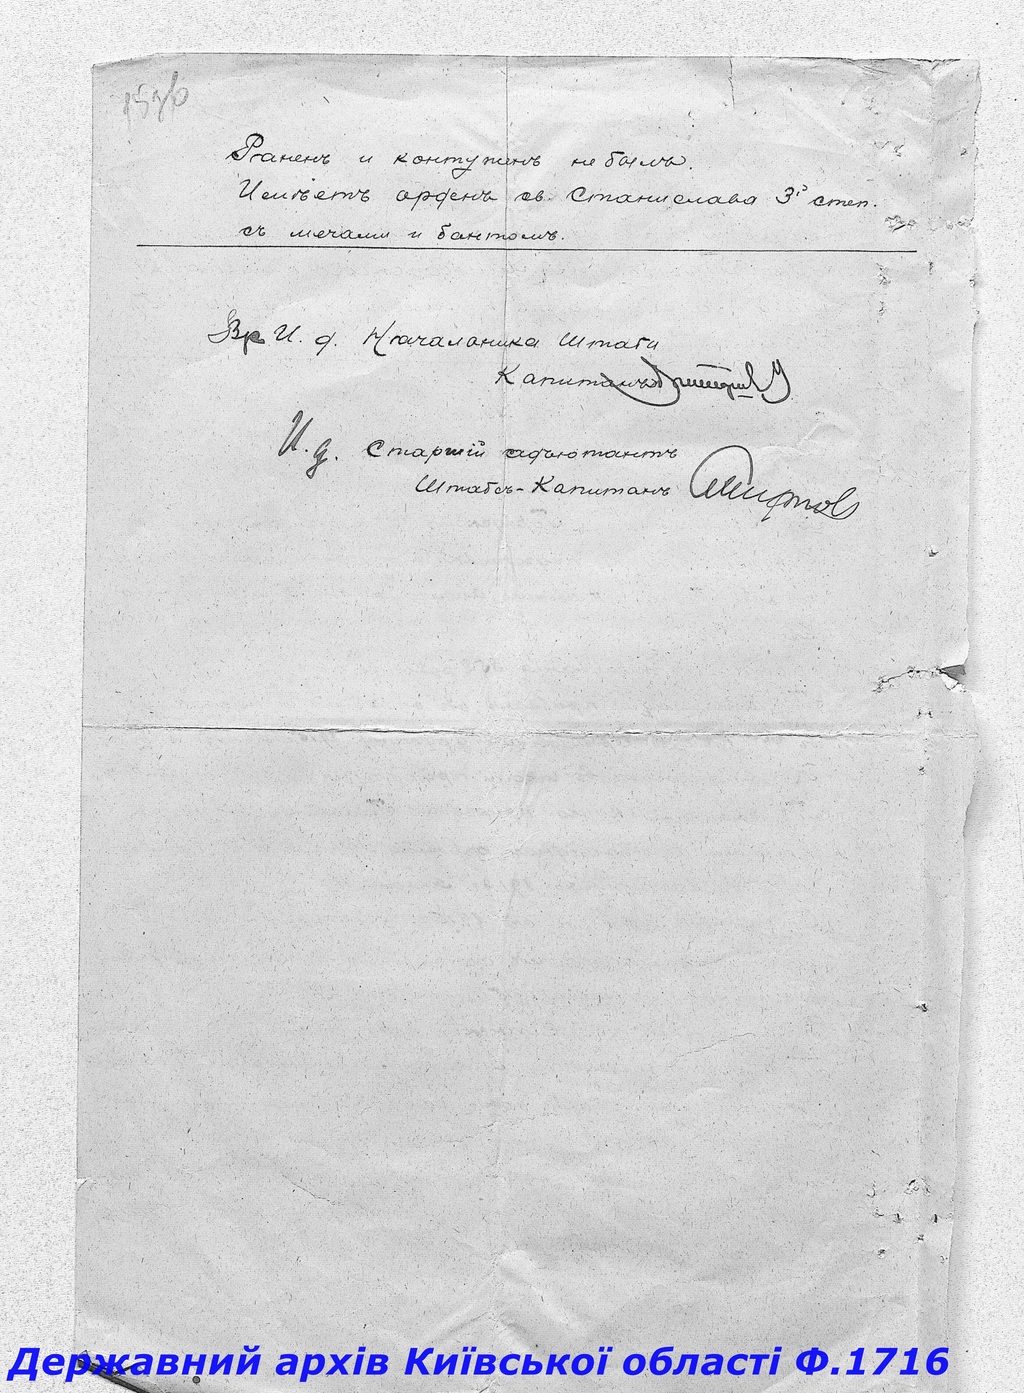 Раненъ и контуженъ не былъ.
Имѣетъ орденъ св. Станислава 3й степ.
съ мечами и бантомъ.
Вр И. д. Начальника Штаба
Капитанъ
И. д. Старшій адъютантъ
Штабсъ-Капитанъ
Державний архів Київської області Ф.1716